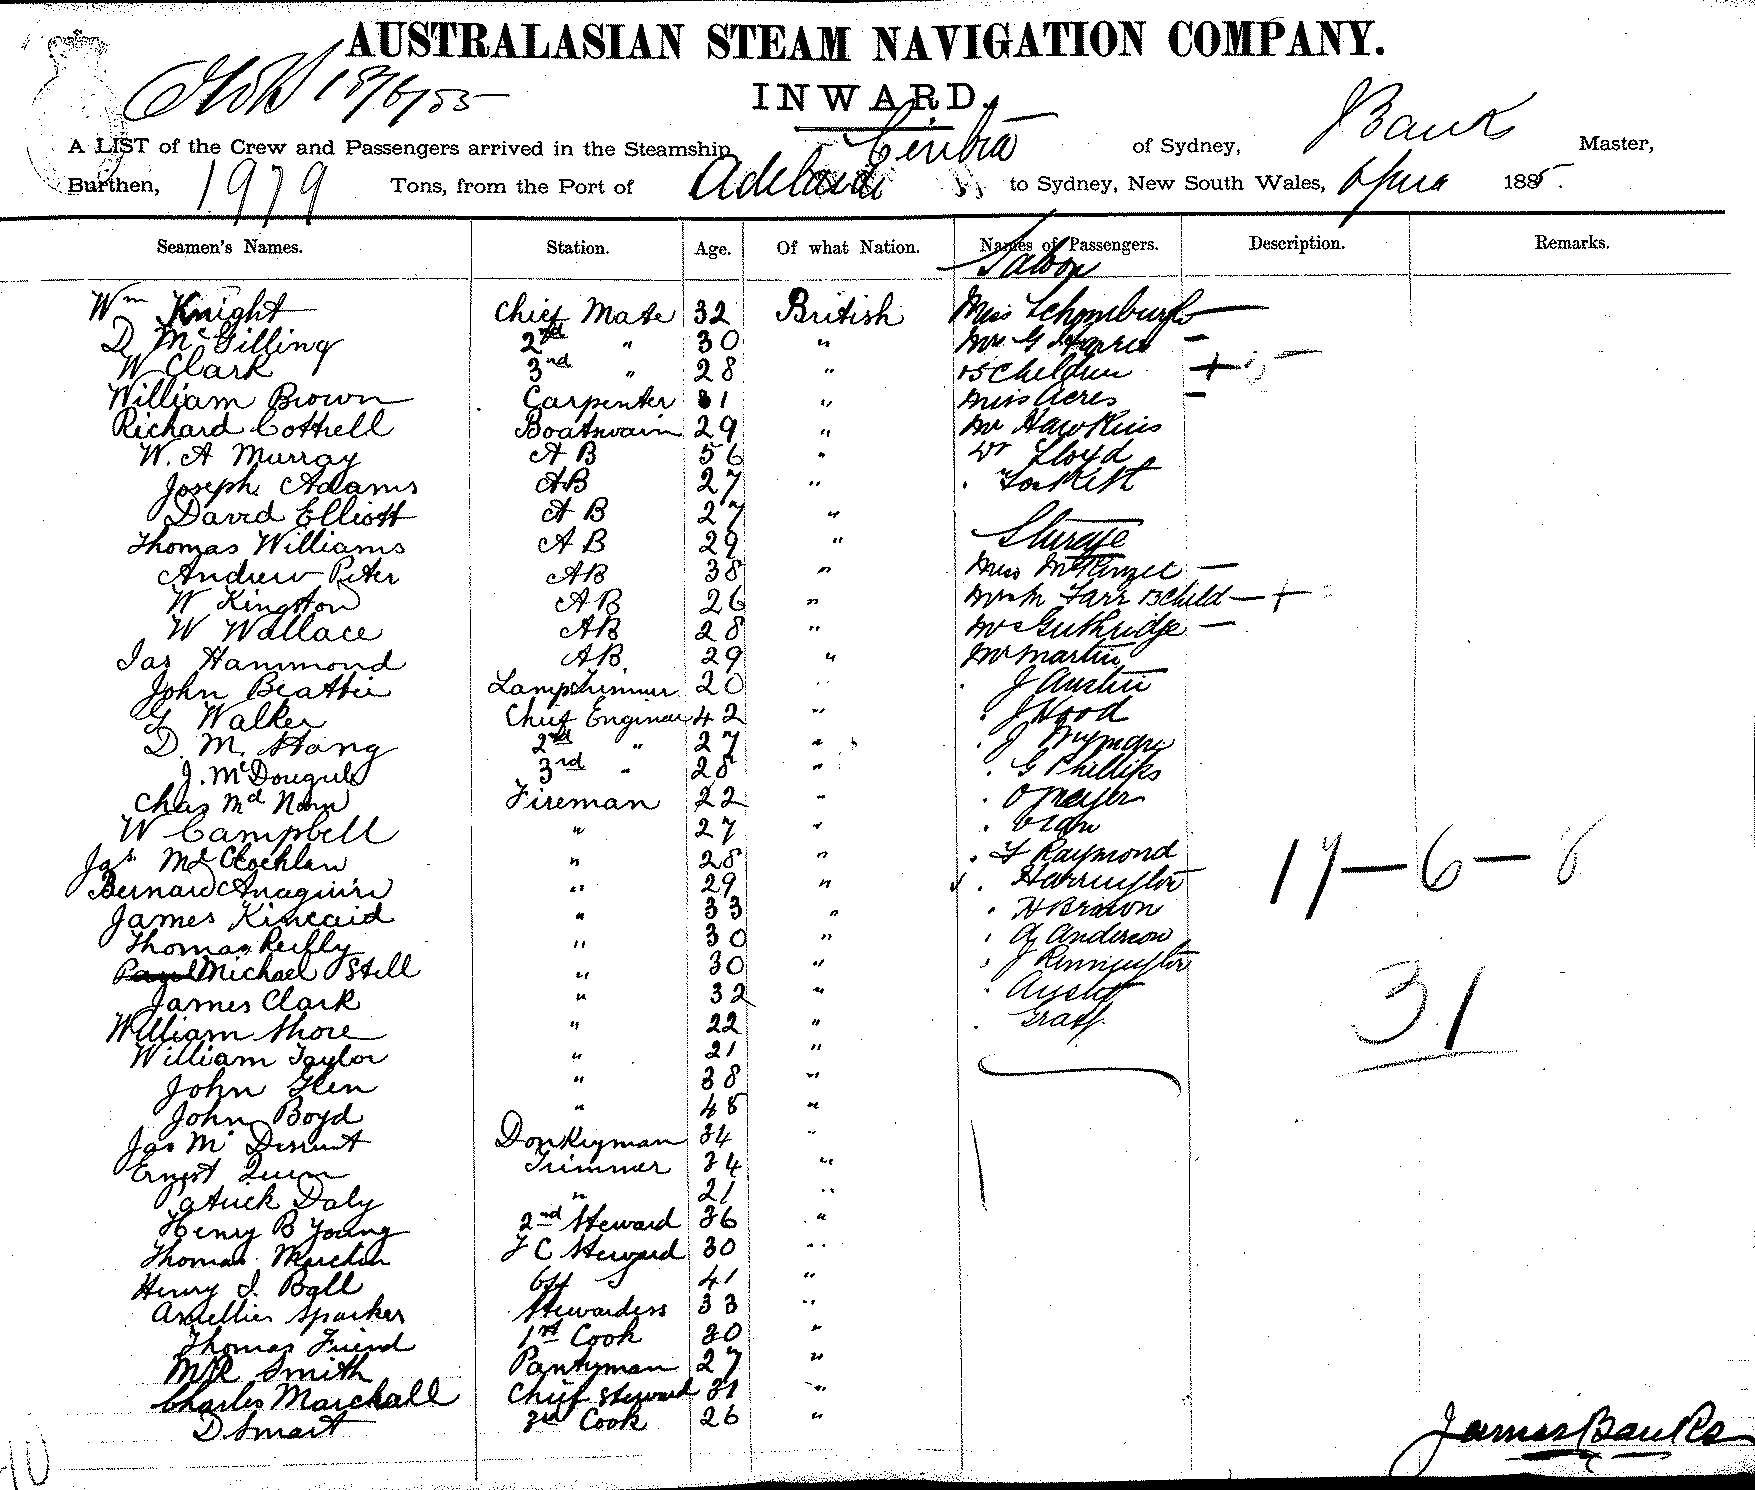 AUSTRALASIAN STEAM NAVIGATION COMPANY.
INWARD.
A LIST of the Crew and Passengers arrived in the Steamship of Sydney, J Banks Master,
Burthen, 1979 Tons, from the Port of Adelaide to Sydney, New South Wales, 1885.
Seamen's Names. Station. Age. Of what Nation. Names of Passengers. Description. Remarks.
Saloon
Wm Knight Chief Mate 32 British Miss Schomburgk —
D McGilling 2nd " 30 " Mrs G Harris —
W Clark 3nd " 28 " & 5 Children +
William Brown Carpenter 31 " Miss Acres —
Richard Cottrell Boatswain 29 " Mr Hawkins
W. A Murray A B 56 " Dr Lloyd
Joseph Adams AB 27 "
David Elliott A B 27 " Steerage
Thomas Williams A B 29 "
Andrew Peter AB 38 " Miss McKenzie —
W Kingston A B 26 " Farr & Child — +
W Wallace AB 28 " Mrs Guthridge —
Jas Hammond AB 29 " Mr Martin
John Beattie Lamptrimmer 20 " J Austin
G Walker Chief Engineer 42 " J Wood
D. M. Stang 2nd " 27 " J
J. McDougul 3rd " 28 " G Phillips
Chas Md Nam Fireman 22 " O Meyer
W Campbell " 27 "
Jas Md Clochlan " 28 " F Raymond
Bernard Anaguire " 29 " Harrington
James Kincaid " 33 " H Brown
17 — 6 — 8
Thomas Reilly " 30 " A Anderson
Michael Still " 30 " J Rennington
James Clark " 32 "
William Shore " 22 "
31
William Taylor " 21 "
John Glen " 38 "
John Boyd " 48 "
Jas Mc Donkeyman 34 "
Ernest Quinn Trimmer 34 "
Patrick Daly " 21 "
Henry B Young 2nd Steward 36 "
Thomas Martin F C Steward 30 "
Henry J. Ball 41 "
Sparkes Stewardess 33 "
Thomas Friend 1st Cook 30 "
Smith Pantryman 27 "
Charles Marchall Chief Steward 31 "
D Smart 2nd Cook 26 "
James Banks
40